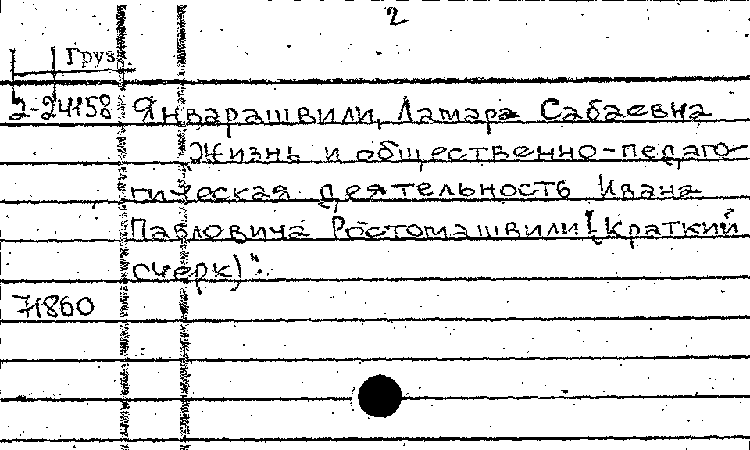 2
Груз.
2-24158 Январашвили, Ламара Сабаевна
Жизнь и общественно-педаго-
гическая деятельность Ивана
Павловича Ростомашвили (Краткий
очерк)".
71860